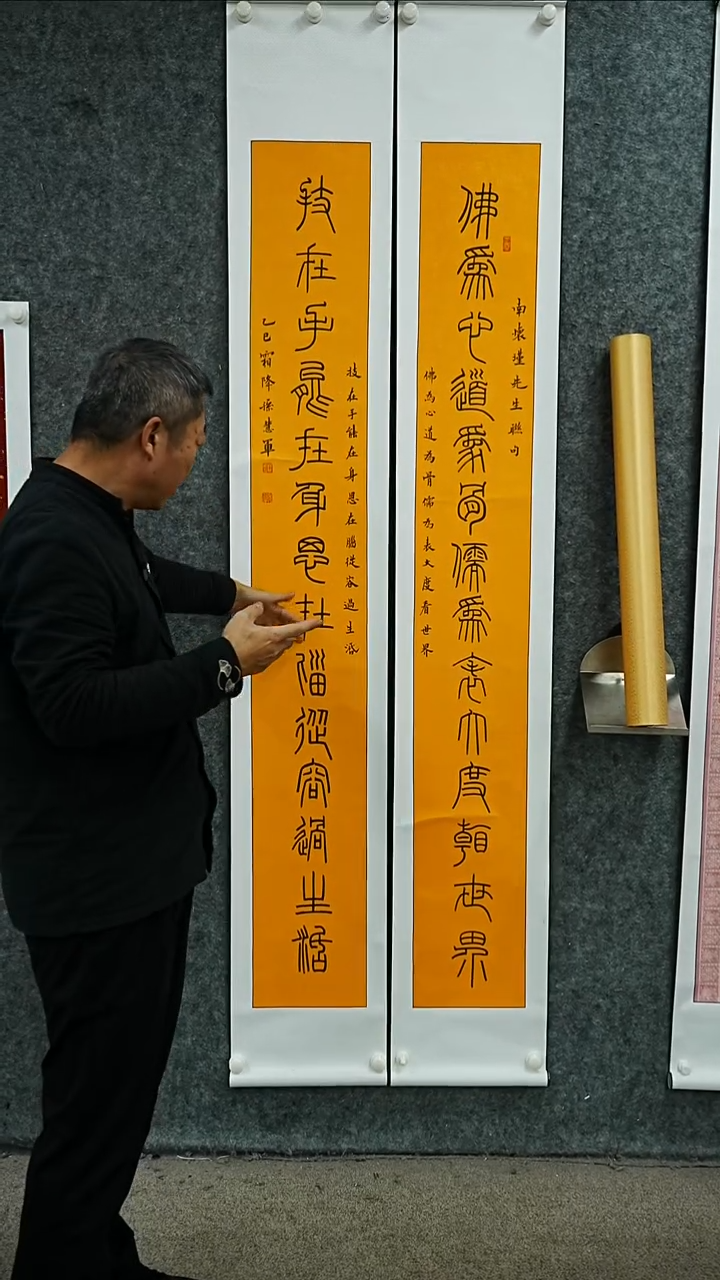 南懷瑾先生聯句
佛爲心道爲骨儒爲表大度看世界
佛為心道為骨儒為表大度看世界
技在手能在身思在腦從容過生活
技在手能在身思在腦從容過生活
乙巳霜降慧軍